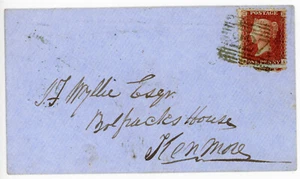 POSTAGE
ONE PENNY
J. F. Wyllie Esqr.
Bolfracks House
Kenmore